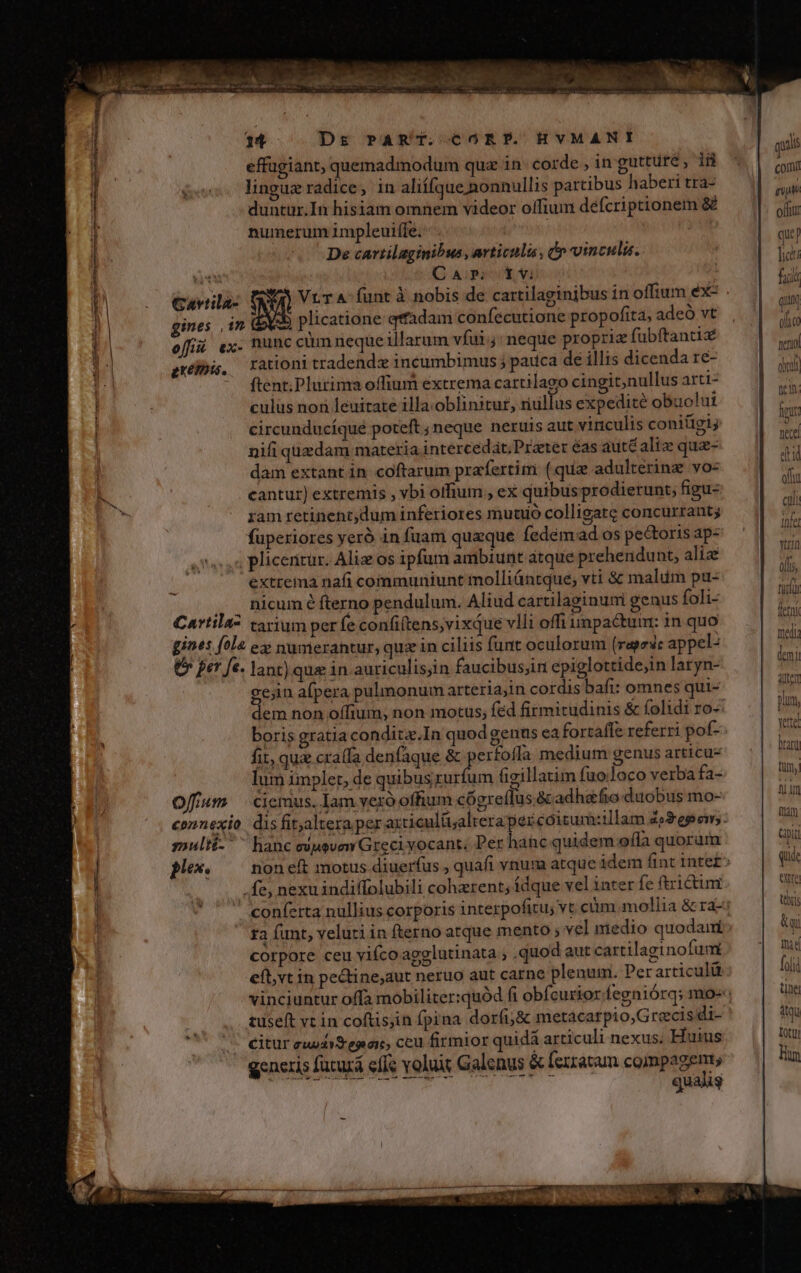 14 DE PART. CORP. HVMANI
effugiant, quemadmodum quæ in corde, in gutture, in
linguæ radice, in aliiſque nonnullis partibus haberi tra-
duntur. In his iam omnem videor oſſium deſcriptionem &
numerum impleuiſſe.
De cartilaginibus, articulis, & vinculis.
CAP. IV.
Cartila- MVLTA ſunt à nobis de cartilaginibus in oſſium ex-
gines, in plicatione quadam conſecutione propoſita, adeò vt
oſſiū ex- nunc cùm neque illarum vſui; neque propriæ ſubſtantiæ
tremis. rationi tradendæ incumbimus; pauca de illis dicenda re-
ſtent. Plurima oſſium extrema cartilago cingit, nullus arti-
culus non leuitate illa oblinitur, nullus expeditè obuolui
circunducíque poteſt; neque neruis aut vinculis coniūgi;
niſi quædam materia intercedat. Præter eas autē aliæ quæ-
dam extant in coſtarum præſertim (quæ adulterinæ vo-
cantur) extremis, vbi oſſium, ex quibus prodierunt, figu-
ram retinent, dum inferiores mutuò colligatę concurrant;
ſuperiores verò in ſuam quæque ſedem ad os pectoris ap-
plicentur. Aliæ os ipſum ambiunt atque prehendunt, aliæ
extrema naſi communiunt molliúntque, vti & malum pu-
nicum è ſterno pendulum. Aliud cartilaginum genus ſoli-
Cartila- tarium per ſe conſiſtens, vixque vlli oſſi impactum: in quo
gines ſolæ eæ numerantur, quæ in ciliis ſunt oculorum (ταρσὺς appel-
& per ſe. lant) quæ in auriculis, in faucibus, in epiglottide, in laryn-
ge, in aſpera pulmonum arteria, in cordis baſi: omnes qui-
dem non oſſium, non motus, ſed firmitudinis & ſolidi ro-
boris gratia conditæ. In quod genus ea fortaſſe referri poſ-
ſit, quæ craſſa denſaque & perfoſſa medium genus articu-
lum implet, de quibus rurſum ſigillatim ſuo loco verba fa-
Oſſium ciemus. Iam verò oſſium cōgreſſus & adhæſio duobus mo-
connexio dis fit, altera per articulū, altera per coitum: illam ἄρθρωσιν,
multi- hanc σύμφυσιν Græci vocant. Per hanc quidem oſſa quorum
plex. non eſt motus diuerſus, quaſi vnum atque idem ſint inter
ſe, nexu indiſſolubili cohærent, ídque vel inter ſe ſtrictim
conſerta nullius corporis interpoſitu, vt cùm mollia & ra-
ra ſunt, veluti in ſterno atque mento, vel medio quodam
corpore ceu viſco agglutinata, quod aut cartilaginoſum
eſt, vt in pectine, aut neruo aut carne plenum. Per articulū
vinciuntur oſſa mobiliter: quòd ſi obſcurior ſegniórq; mo-
tus eſt vt in coſtis, in ſpina dorſi, & metacarpio, Græcis di-
citur συνάρθρωσις, ceu firmior quidā articuli nexus. Huius
generis ſuturā eſſe voluit Galenus & ſerratam compagem,
qualis